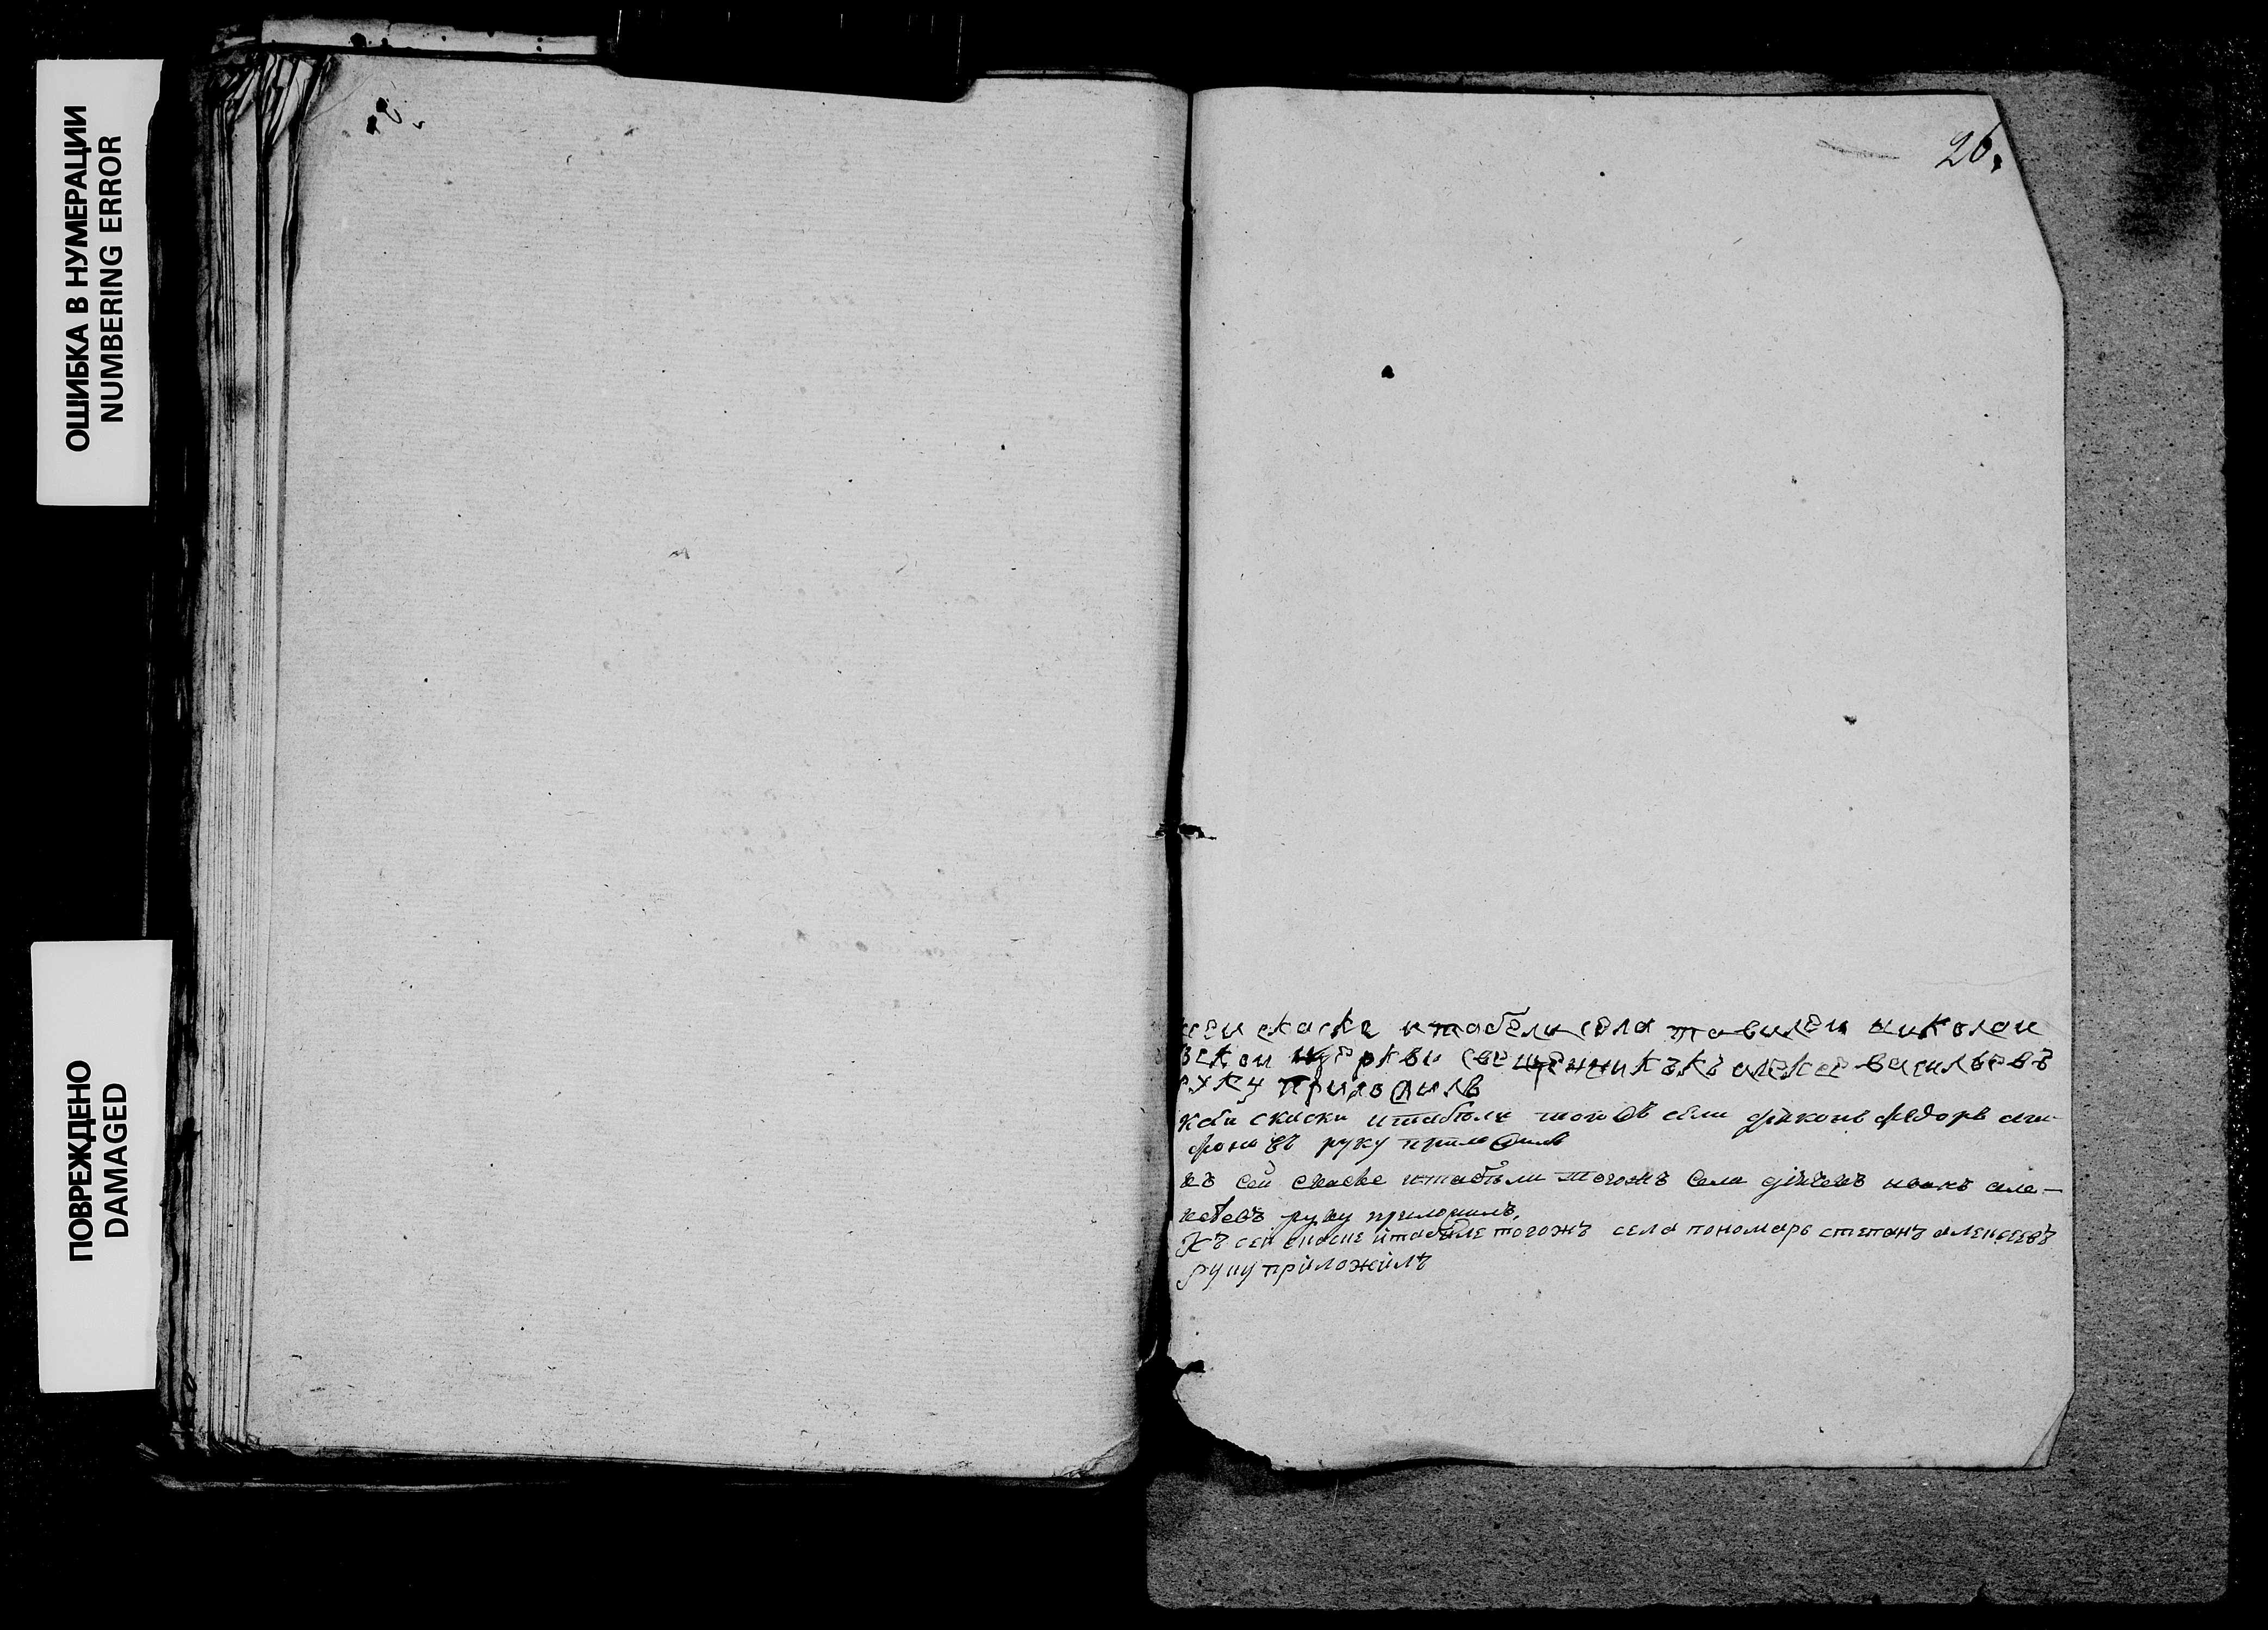 ОШИБКА В НУМЕРАЦИИ
NUMBERING ERROR
ПОВРЕЖДЕНО
DAMAGED
26.
сеи скаске и табели села николаи
вскои церкви свещенникъ алексе васильевъ
руку приложилъ
скаски и табели села дяконъ федоръ
руку приложилъ
къ сей скаске и табѣли тогожъ села дьячекъ але-
ксѣевъ руку приложилъ,
Къ сеи скаске и табеле тогожъ села пономарь степанъ алексеевъ
руку приложилъ